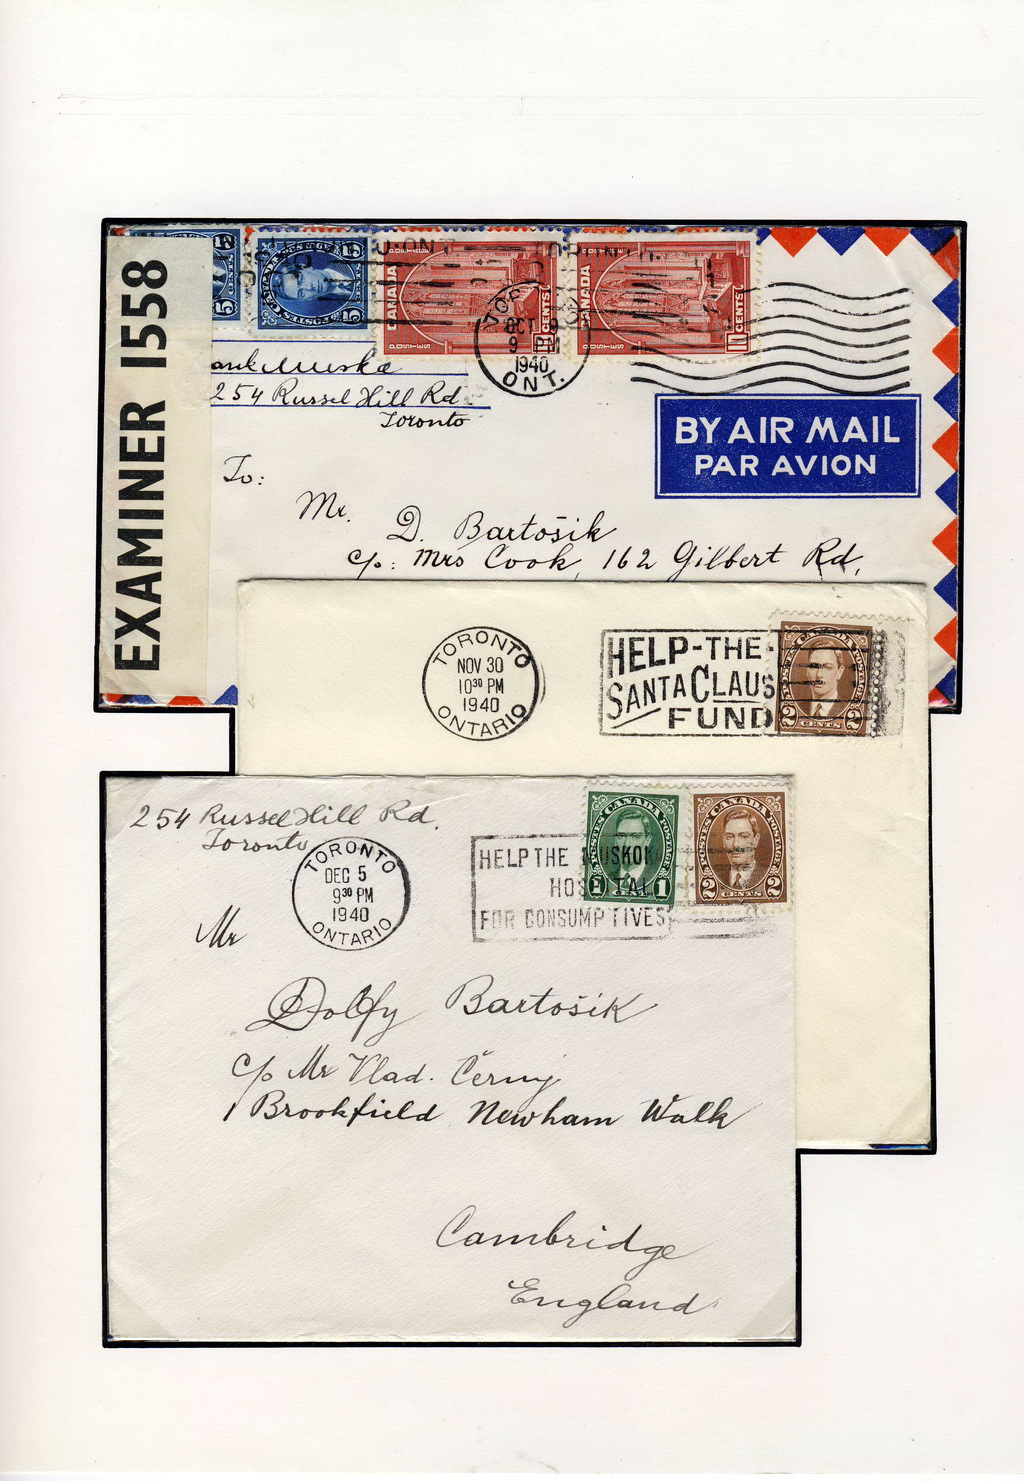 EXAMINER 1558
5 CENTS
5 5
CANADA
POSTES POSTAGE
CANADA
POSTES
10 CENTS
CANADA
POSTES
10 CENTS
TORONTO
OCT 9
9 PM
1940
ONT.
254 Russel Hill Rd.
Toronto
BY AIR MAIL
PAR AVION
To:
Mr.
D. Bartošik
c/o: Mrs Cook, 162 Gilbert Rd,
TORONTO
NOV 30
10³⁰ PM
1940
ONTARIO
HELP-THE-
SANTA CLAUS
FUND
POSTES CANADA POSTAGE
2 CENTS 2
254 Russel Hill Rd.
Toronto
TORONTO
DEC 5
9³⁰ PM
1940
ONTARIO
HELP THE MUSKOKA
HOSPITAL
FOR CONSUMPTIVES
POSTES CANADA POSTAGE
1 1
POSTES CANADA POSTAGE
2 CENTS 2
Mr
Dolfy Bartošik
c/o Mr Vlad. Černy
1 Brookfield Newham Walk
Cambridge
England